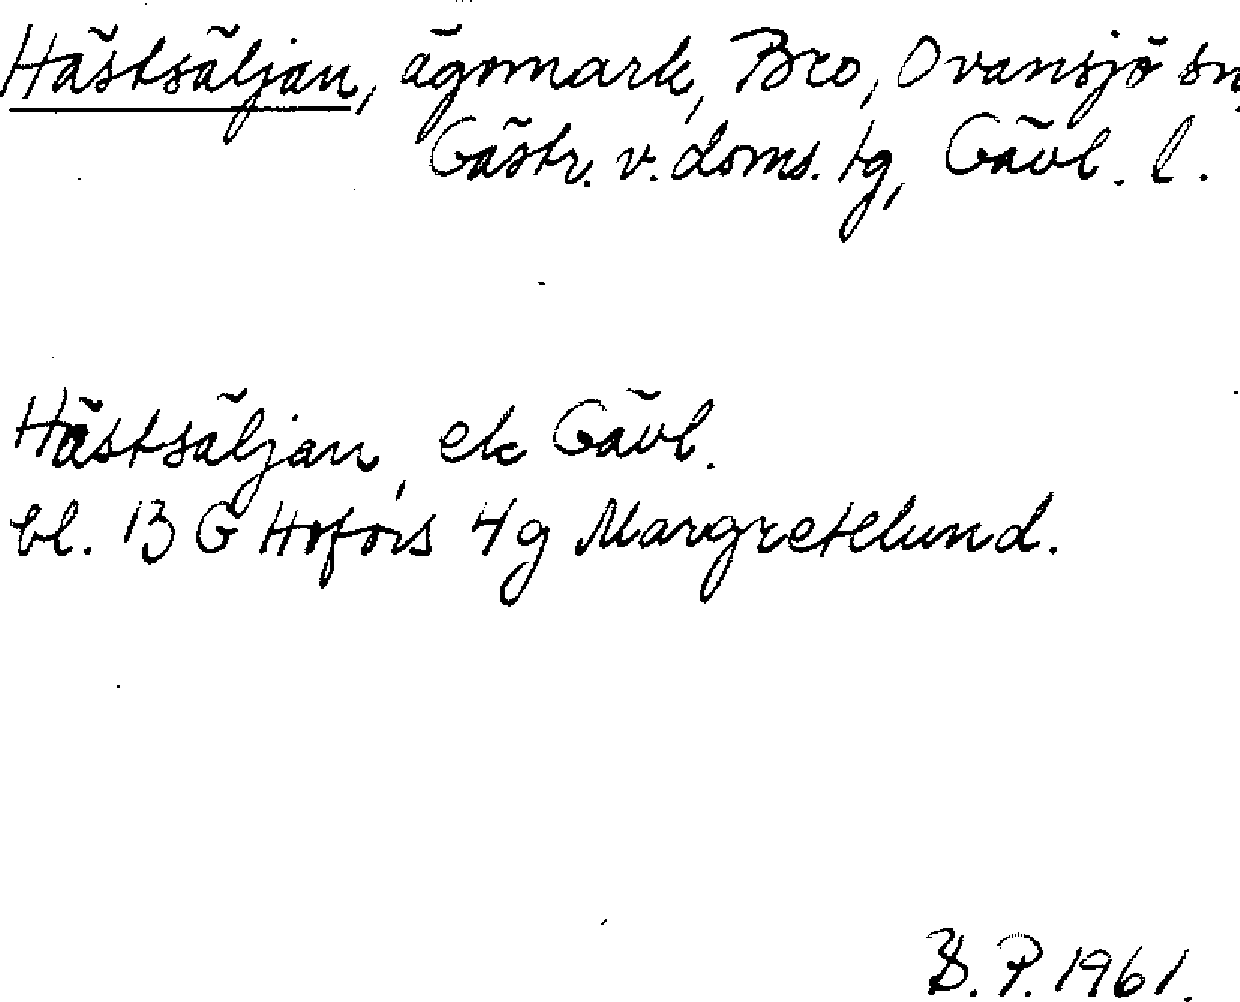 Hästsäljan, ägomark, Bro, Ovansjö sn,
Gästr. v. doms. tg, Gävl. l.
Hästsäljan, ek Gävl.
bl. 13 G Hofors 4g Margretelund.
B. P. 1961.